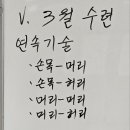 V. 3월 수련
연속기술
· 손목-머리
· 손목-허리
· 머리-머리
· 머리-허리